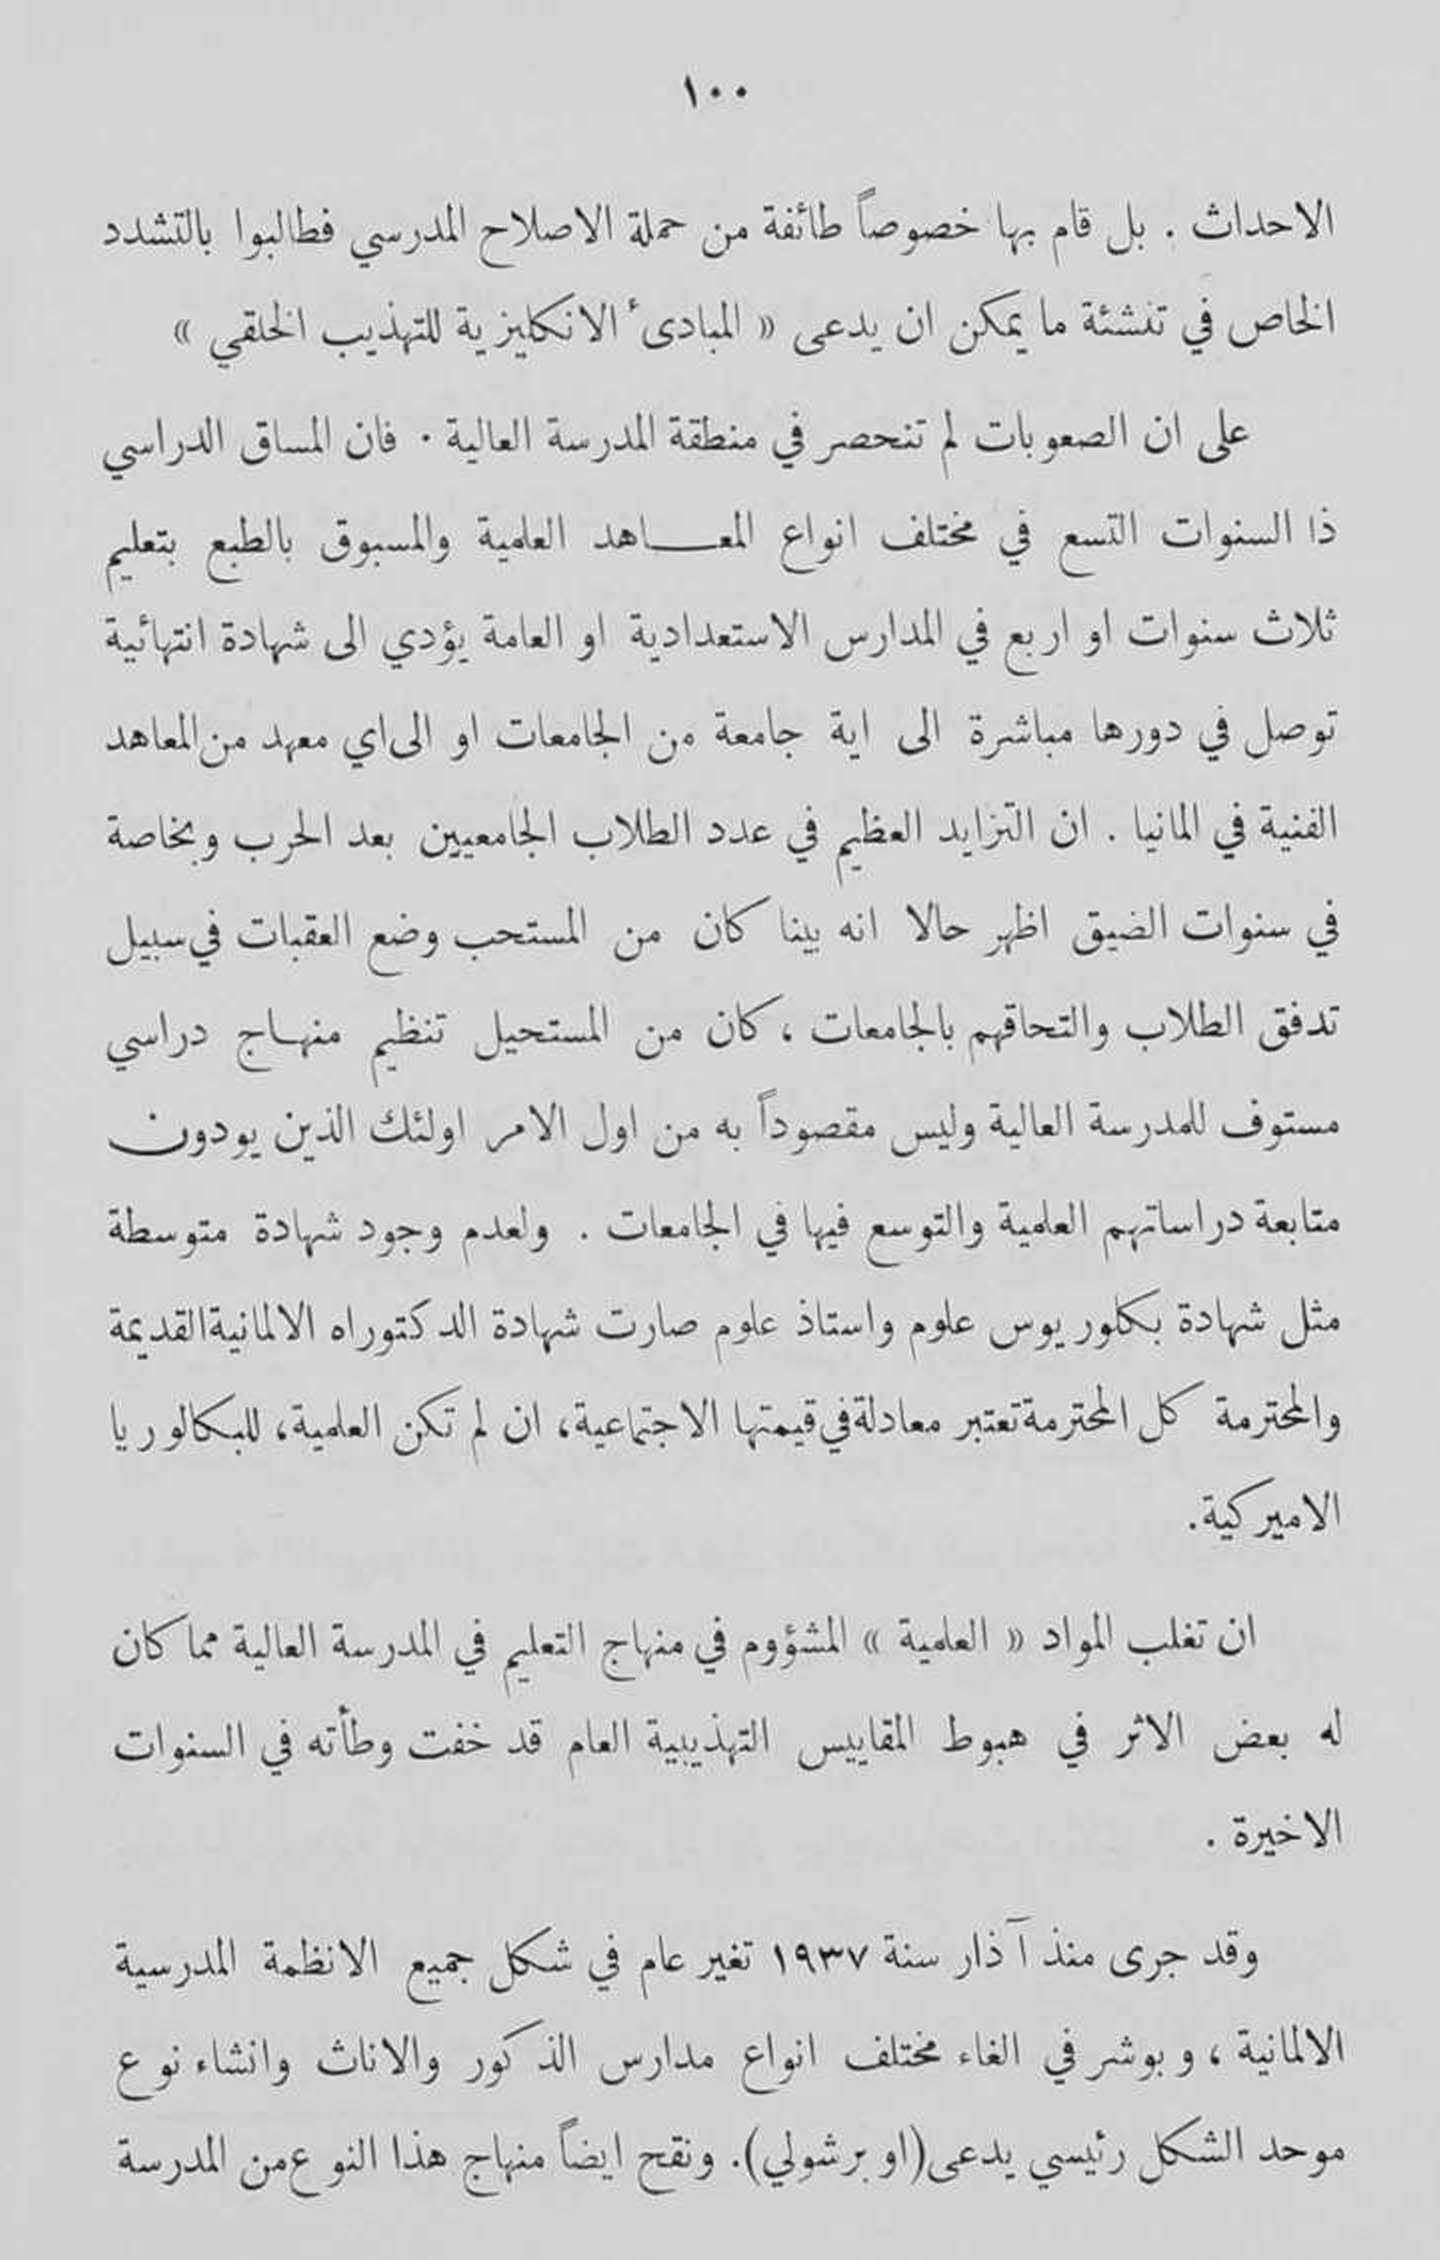 ١٠٠
الاحداث . بل قام بها خصوصاً طائفة من حملة الاصلاح المدرسي فطالبوا بالتشدد
الخاص في تنشئة ما يمكن ان يدعى « المبادىء الانكليزية للتهذيب الخلقي »
على ان الصعوبات لم تنحصر في منطقة المدرسة العالية . فان المساق الدراسي
ذا السنوات التسع في مختلف انواع المعـــاهد العلمية والمسبوق بالطبع بتعليم
ثلاث سنوات او اربع في المدارس الاستعدادية او العامة يؤدي الى شهادة انتهائية
توصل في دورها مباشرة الى اية جامعة من الجامعات او الى اي معهد من المعاهد
الفنية في المانيا . ان التزايد العظيم في عدد الطلاب الجامعيين بعد الحرب وبخاصة
في سنوات الضيق اظهر حالا انه بينا كان من المستحب وضع العقبات في سبيل
تدفق الطلاب والتحاقهم بالجامعات ، كان من المستحيل تنظيم منهـاج دراسي
مستوف للمدرسة العالية وليس مقصوداً به من اول الامر اولئك الذين يودون
متابعة دراساتهم العلمية والتوسع فيها في الجامعات . ولعدم وجود شهادة متوسطة
مثل شهادة بكلوريوس علوم واستاذ علوم صارت شهادة الدكتوراه الالمانية القديمة
والمحترمة كل المحترمة تعتبر معادلة في قيمتها الاجتماعية، ان لم تكن العلمية، للبكالوريا
الاميركية.
ان تغلب المواد « العلمية » المشؤوم في منهاج التعليم في المدرسة العالية مما كان
له بعض الاثر في هبوط المقاييس التهذيبية العام قد خفت وطأته في السنوات
الاخيرة .
وقد جرى منذ آذار سنة ١٩٣٧ تغير عام في شكل جميع الانظمة المدرسية
الالمانية ، وبوشر في الغاء مختلف انواع مدارس الذكور والاناث وانشاء نوع
موحد الشكل رئيسي يدعى (اوبرشولي). ونقح ايضاً منهاج هذا النوع من المدرسة